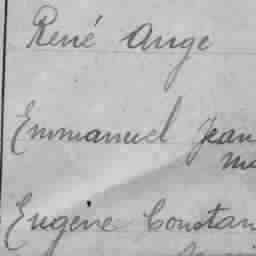 René Ange
Emmanuel Jean
Eugène Constan